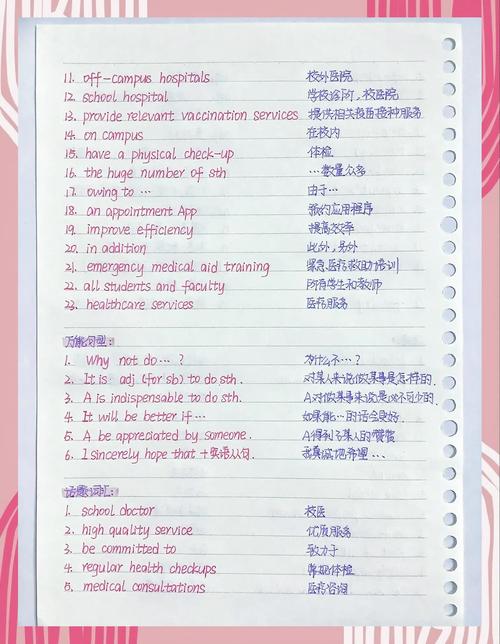 11. off-campus hospitals 校外医院
12. school hospital 学校诊所，校医院
13. provide relevant vaccination services 提供相关疫苗接种服务
14. on campus 在校内
15. have a physical check-up 体检
16. the huge number of sth …数量众多
17. owing to … 由于…
18. an appointment App 预约应用程序
19. improve efficiency 提高效率
20. in addition 此外，另外
21. emergency medical aid training 紧急医疗救助培训
22. all students and faculty 所有学生和教师
23. healthcare services 医疗服务
万能句型：
1. Why not do … ? 为什么不…？
2. It is adj. (for sb) to do sth. 对某人来说做某事是怎样的.
3. A is indispensable to do sth. A对做某事来说是必不可少的.
4. It will be better if … 如果能…的话会更好.
5. A be appreciated by someone. A得到了某人的赞赏
6. I sincerely hope that +英语从句. 我真诚地希望…
话题词汇：
1. school doctor 校医
2. high quality service 优质服务
3. be committed to 致力于
4. regular health checkups 常规体检
5. medical consultations 医疗咨询